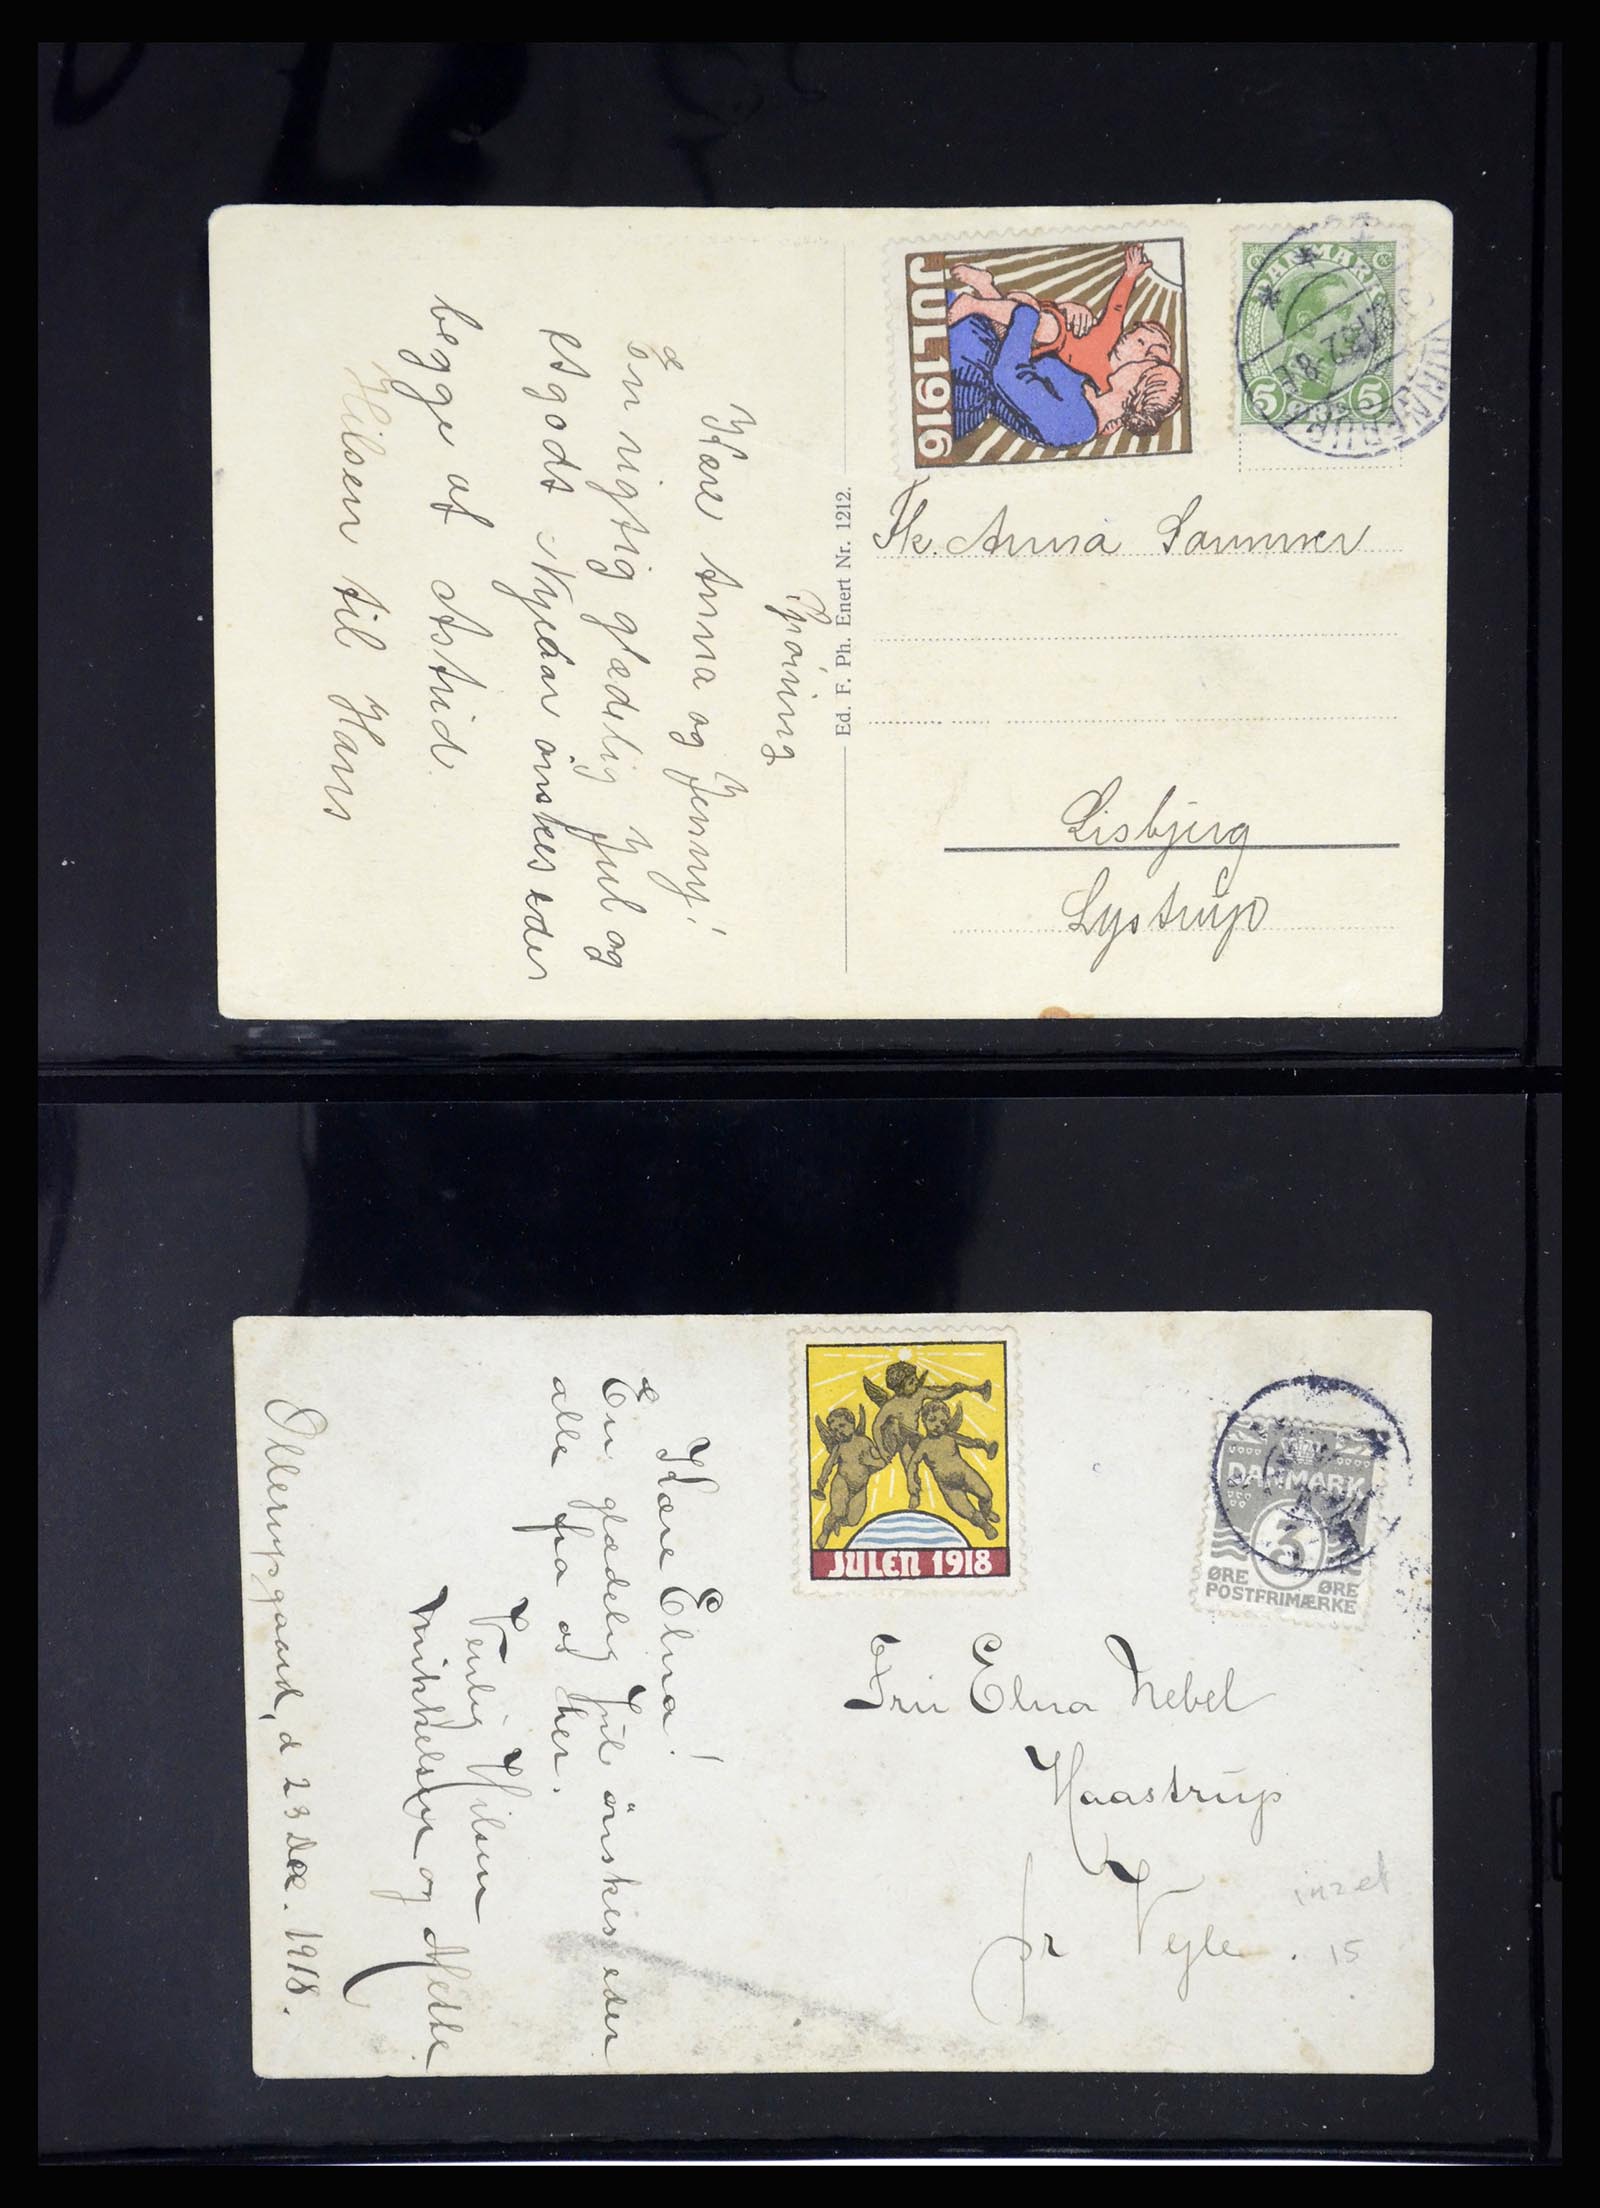 JUL 1916
DANMARK
5 ØRE 5
HINNERUP
Frk. Anna Sommer
Lisbjerg
Lystrup
Ed. F. Ph. Enert Nr. 1212.
Spørring
Kære Anna og Jenny!
En rigtig glædelig Jul og
et godt Nytaar ønskes eder
begge af Astrid.
Hilsen til Hans
JULEN 1918
DANMARK
3
ØRE ØRE
POSTFRIMÆRKE
Frk Elna Nebel
Haastrup
pr Vejle.
inzet
15
Kære Elna!
En glædelig Jul ønskes eder
alle fra os her.
Venlig Hilsen
Mikkelsen og Mette
Ollerupgaard, d 23 Dec. 1918.